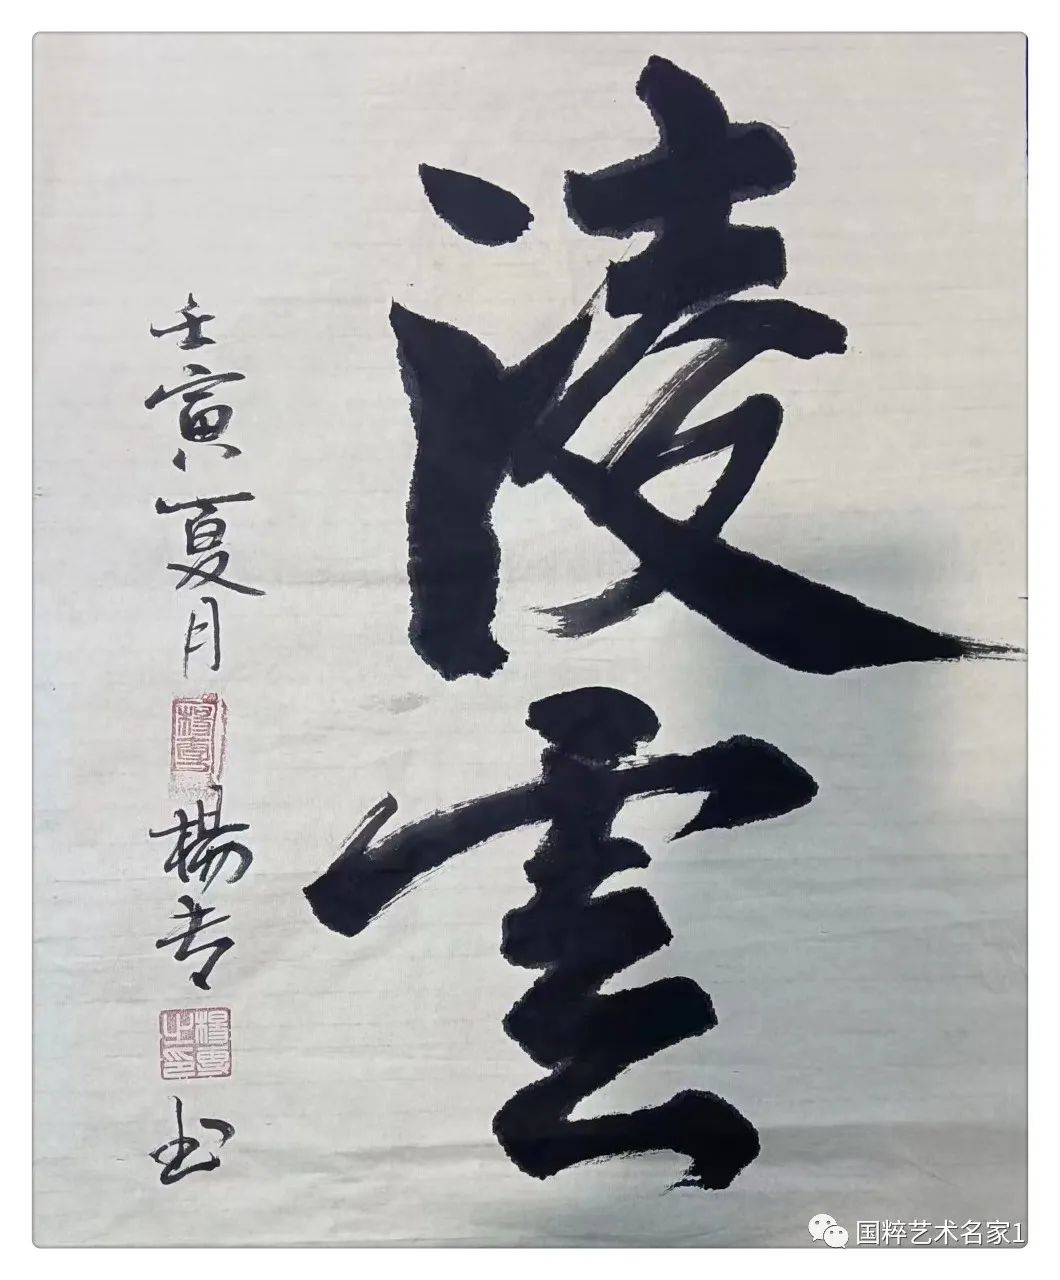 凌雲
壬寅夏月
楊专
书
国粹艺术名家1